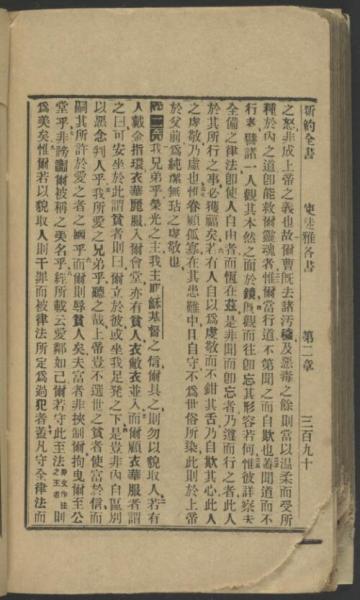 新約全書 使徒雅各書 第二章 三百九十
之怒非成上帝之義也故爾曹旣去諸污穢及惡毒之餘則當以温柔而受所
種於內之道卽能救爾靈魂者惟爾當行道不第聞之而自欺也蓋聞道而不
行者譬諸一人觀其本然之面於鏡旣觀而往卽忘其形容若何惟彼詳察夫
全備之律法卽使人自由者而恆在茲是非聞而卽忘者乃遵而行之者此人
於其所行之事必獲福矣若有人自以爲虔敬而不鉗其舌乃自欺其心此人
之虔敬乃虛也惟眷顧孤寡在其患難中日自守不爲世俗所染此則於上帝
於父前爲純潔無玷之虔敬也
第二章我兄弟乎榮光之主我主耶穌基督之信爾具之則勿以貌取人若有
人戴金指環衣華麗服入爾會堂亦有貧人衣敝衣並入而爾顧衣華服者謂
之曰可安坐於此謂貧者則曰爾立於彼或坐我足凳之下是豈非內自區別
以惡念判人乎我所愛之兄弟乎聽之哉上帝豈不選世之貧者使富於信而
嗣其所許於愛之者之國乎而爾則辱貧人矣夫富者非挾制爾拘曳爾至公
堂乎非謗讟爾被稱之美名乎經所載云愛鄰如己爾若守此至法則
爲美矣惟爾若以貌取人則干罪而被律法所定爲過犯者蓋凡守全律法而